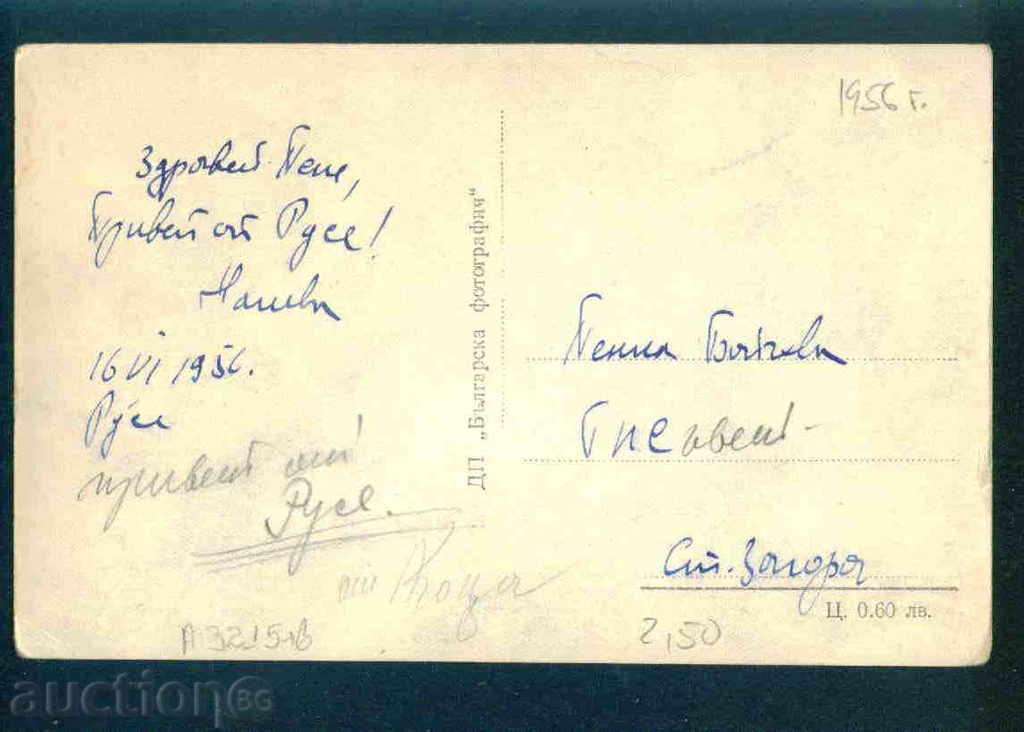 1956 г.
Здравей Пене,
Привет от Русе!
16 VI 1956.
Русе
привет от
Русе.
от Коца
А 3215-В
ДП „Българска фотография“
Пенка
Ст. Загора
Ц. 0.60 лв.
2,50
auctionBG